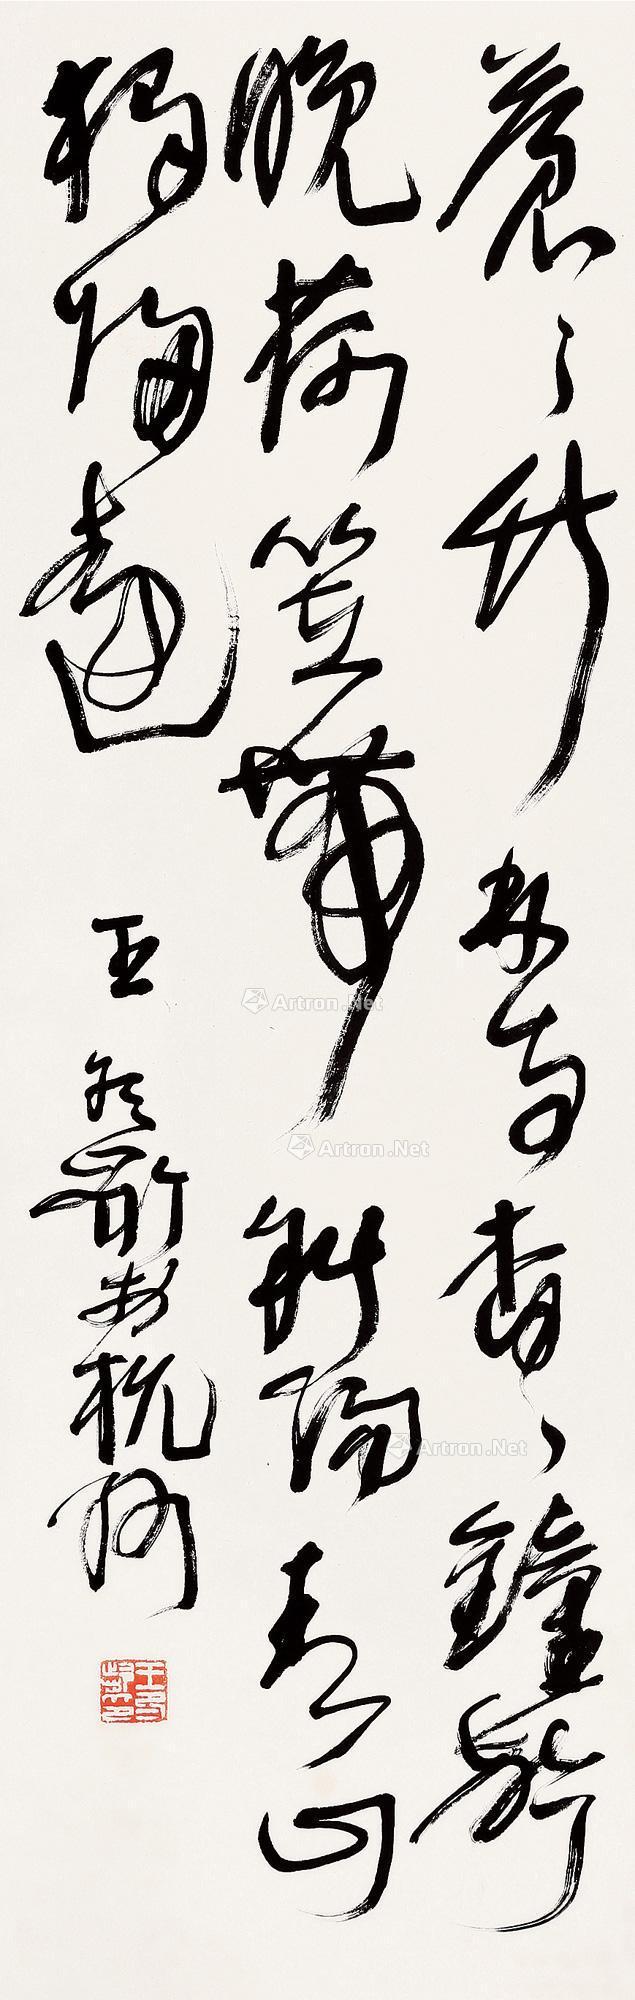 蒼々竹林寺杳々鐘聲
晚荷笠帶斜陽青山
獨歸遠
王冬齡於杭州
王冬齡印
Artron.Net
Artron.Net
Artron.Net